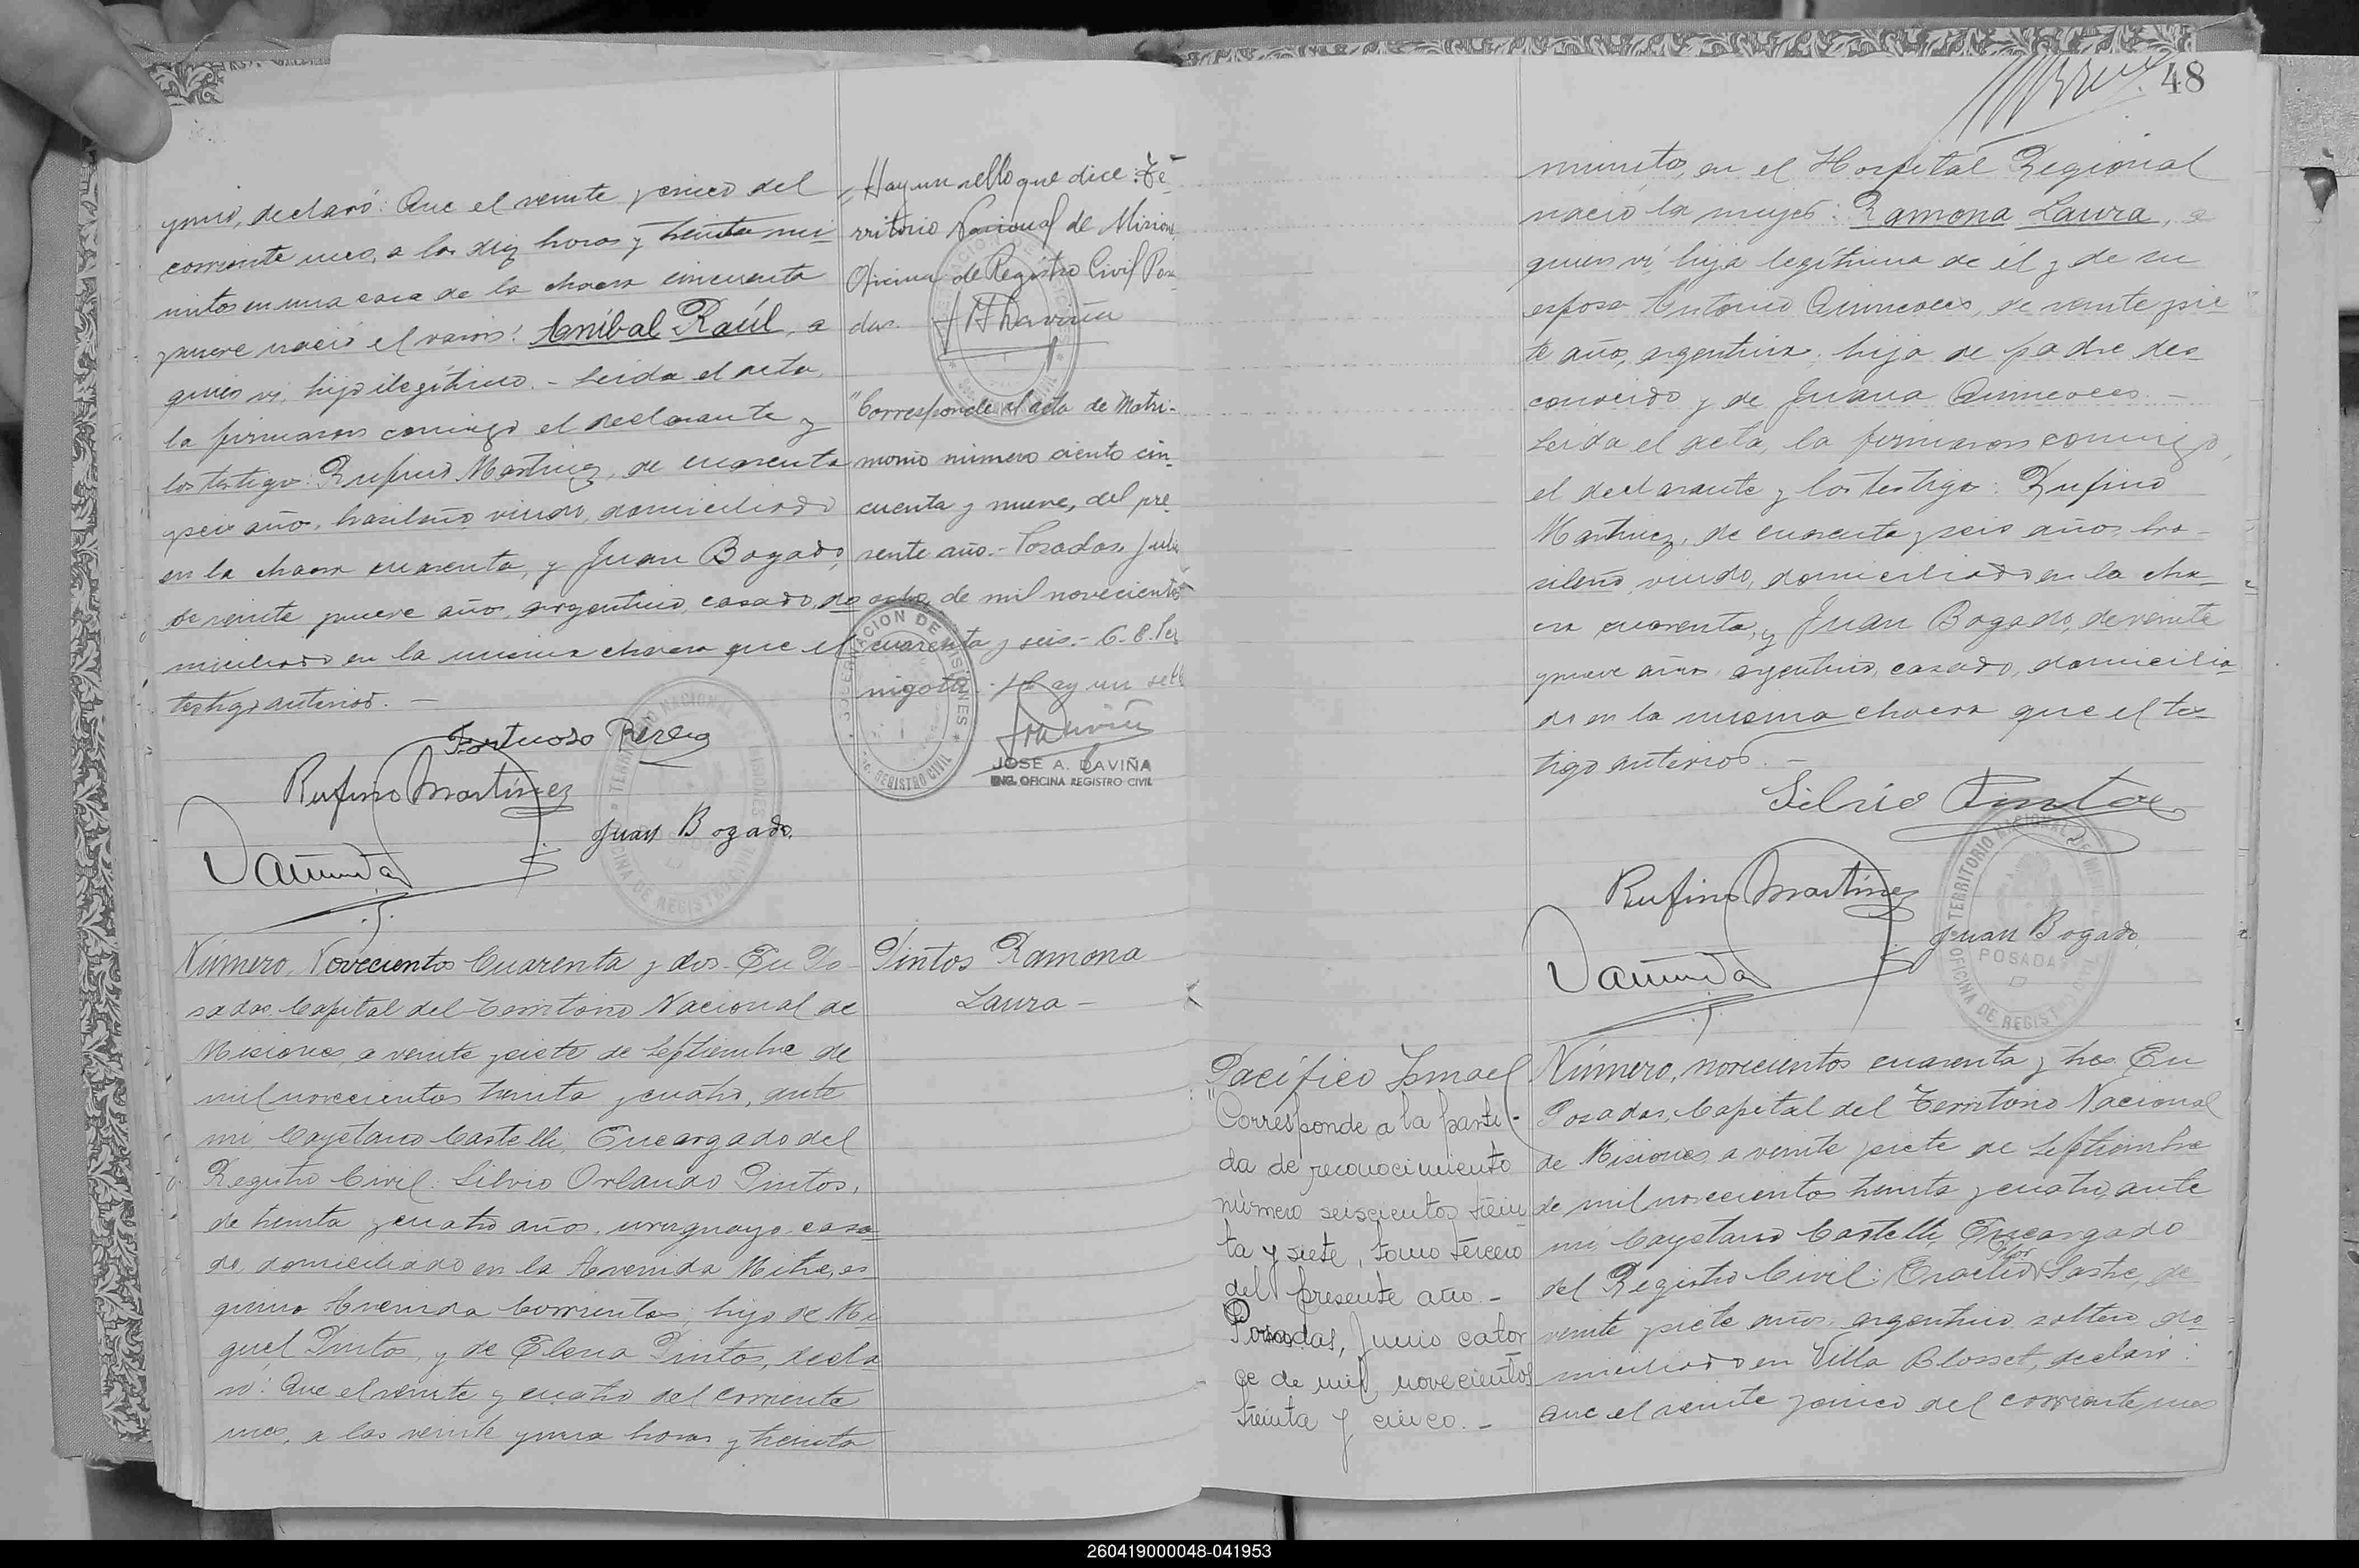 yuno, declaró: Que el veinte y cinco del
corriente mes, a las diez horas y treinta mi-
nutos en una casa de la chacra cincuenta
y nueve nació el varón: Aníbal Raúl, a
quien vi, hijo ilegítimo. - Leída el acta,
la firmaron conmigo el declarante y
los testigos: Rufino Martínez, de cuarenta
y seis años, brasileño viudo, domiciliado
en la chacra cuarenta, y Juan Bogado,
de veinte y nueve años, argentino, casado, do
miciliado en la misma chacra que el
testigo anterior. -
Rufino Martínez
Juan Bogado.
Hay un sello que dice: Te-
rritorio Nacional de Misiones
Oficina de Registro Civil Posa
das.
"Corresponde al acta de Matri-
monio número ciento cin-
cuenta y nueve, del pre
sente año. - Posadas, Julio
ocho de mil novecientos
cuarenta y seis. -
Hay un sello
JOSE A. DAVIÑA
ENC. OFICINA REGISTRO CIVIL
Número, Novecientos Cuarenta y dos. En Po-
sadas, Capital del Territorio Nacional de
Misiones, a veinte y siete de Septiembre de
mil novecientos treinta y cuatro, ante
mí, Cayetano Castelli, Encargado del
Registro Civil: Silvio Orlando Pintos,
de treinta y cuatro años, uruguayo, casa-
do, domiciliado en la Avenida Mitre, es-
quina Avenida Corrientes, hijo de Mi
guel Pintos, y de Elena Pintos, decla
ró: Que el veinte y cuatro del corriente
mes, a las veinte y una horas y treinta
Pintos Ramona
Laura -
48
minutos, en el Hospital Regional
nació la mujer: Ramona Laura, a
quien vi, hija legítima de él y de su
esposa Antonia Quineoces, de veinte y sie
te años, argentina, hija de padre des-
conocido y de Juana Quineoces. -
Leída el acta, la firmaron conmigo,
el declarante y los testigos: Rufino
Martínez, de cuarenta y seis años, bra-
sileño, viudo, domiciliado en la cha-
cra cuarenta, y Juan Bogado, de veinte
y nueve años, argentino, casado, domicilia
do en la misma chacra que el tes
tigo anterior. -
Silvio Pintos
Rufino Martínez
Juan Bogado
TERRITORIO NACIONAL DE MISIONES
POSADAS
OFICINA DE REGISTRO CIVIL
Pacífico Ismael
"Corresponde a la parti-
da de reconocimiento
número seiscientos trein
ta y siete, tomo tercero
del presente año. -
Posadas, Junio cator
ce de mil novecientos
treinta y cinco. -
Número, novecientos cuarenta y tres. En
Posadas, Capital del Territorio Nacional
de Misiones, a veinte y siete de Septiembre
de mil novecientos treinta y cuatro, ante
mí, Cayetano Castelli, Encargado
del Registro Civil: Sastre, de
veinte y siete años, argentino, soltero, do
miciliado en Villa Blosset, declaró:
Que el veinte y cinco del corriente mes
260419000048-041953